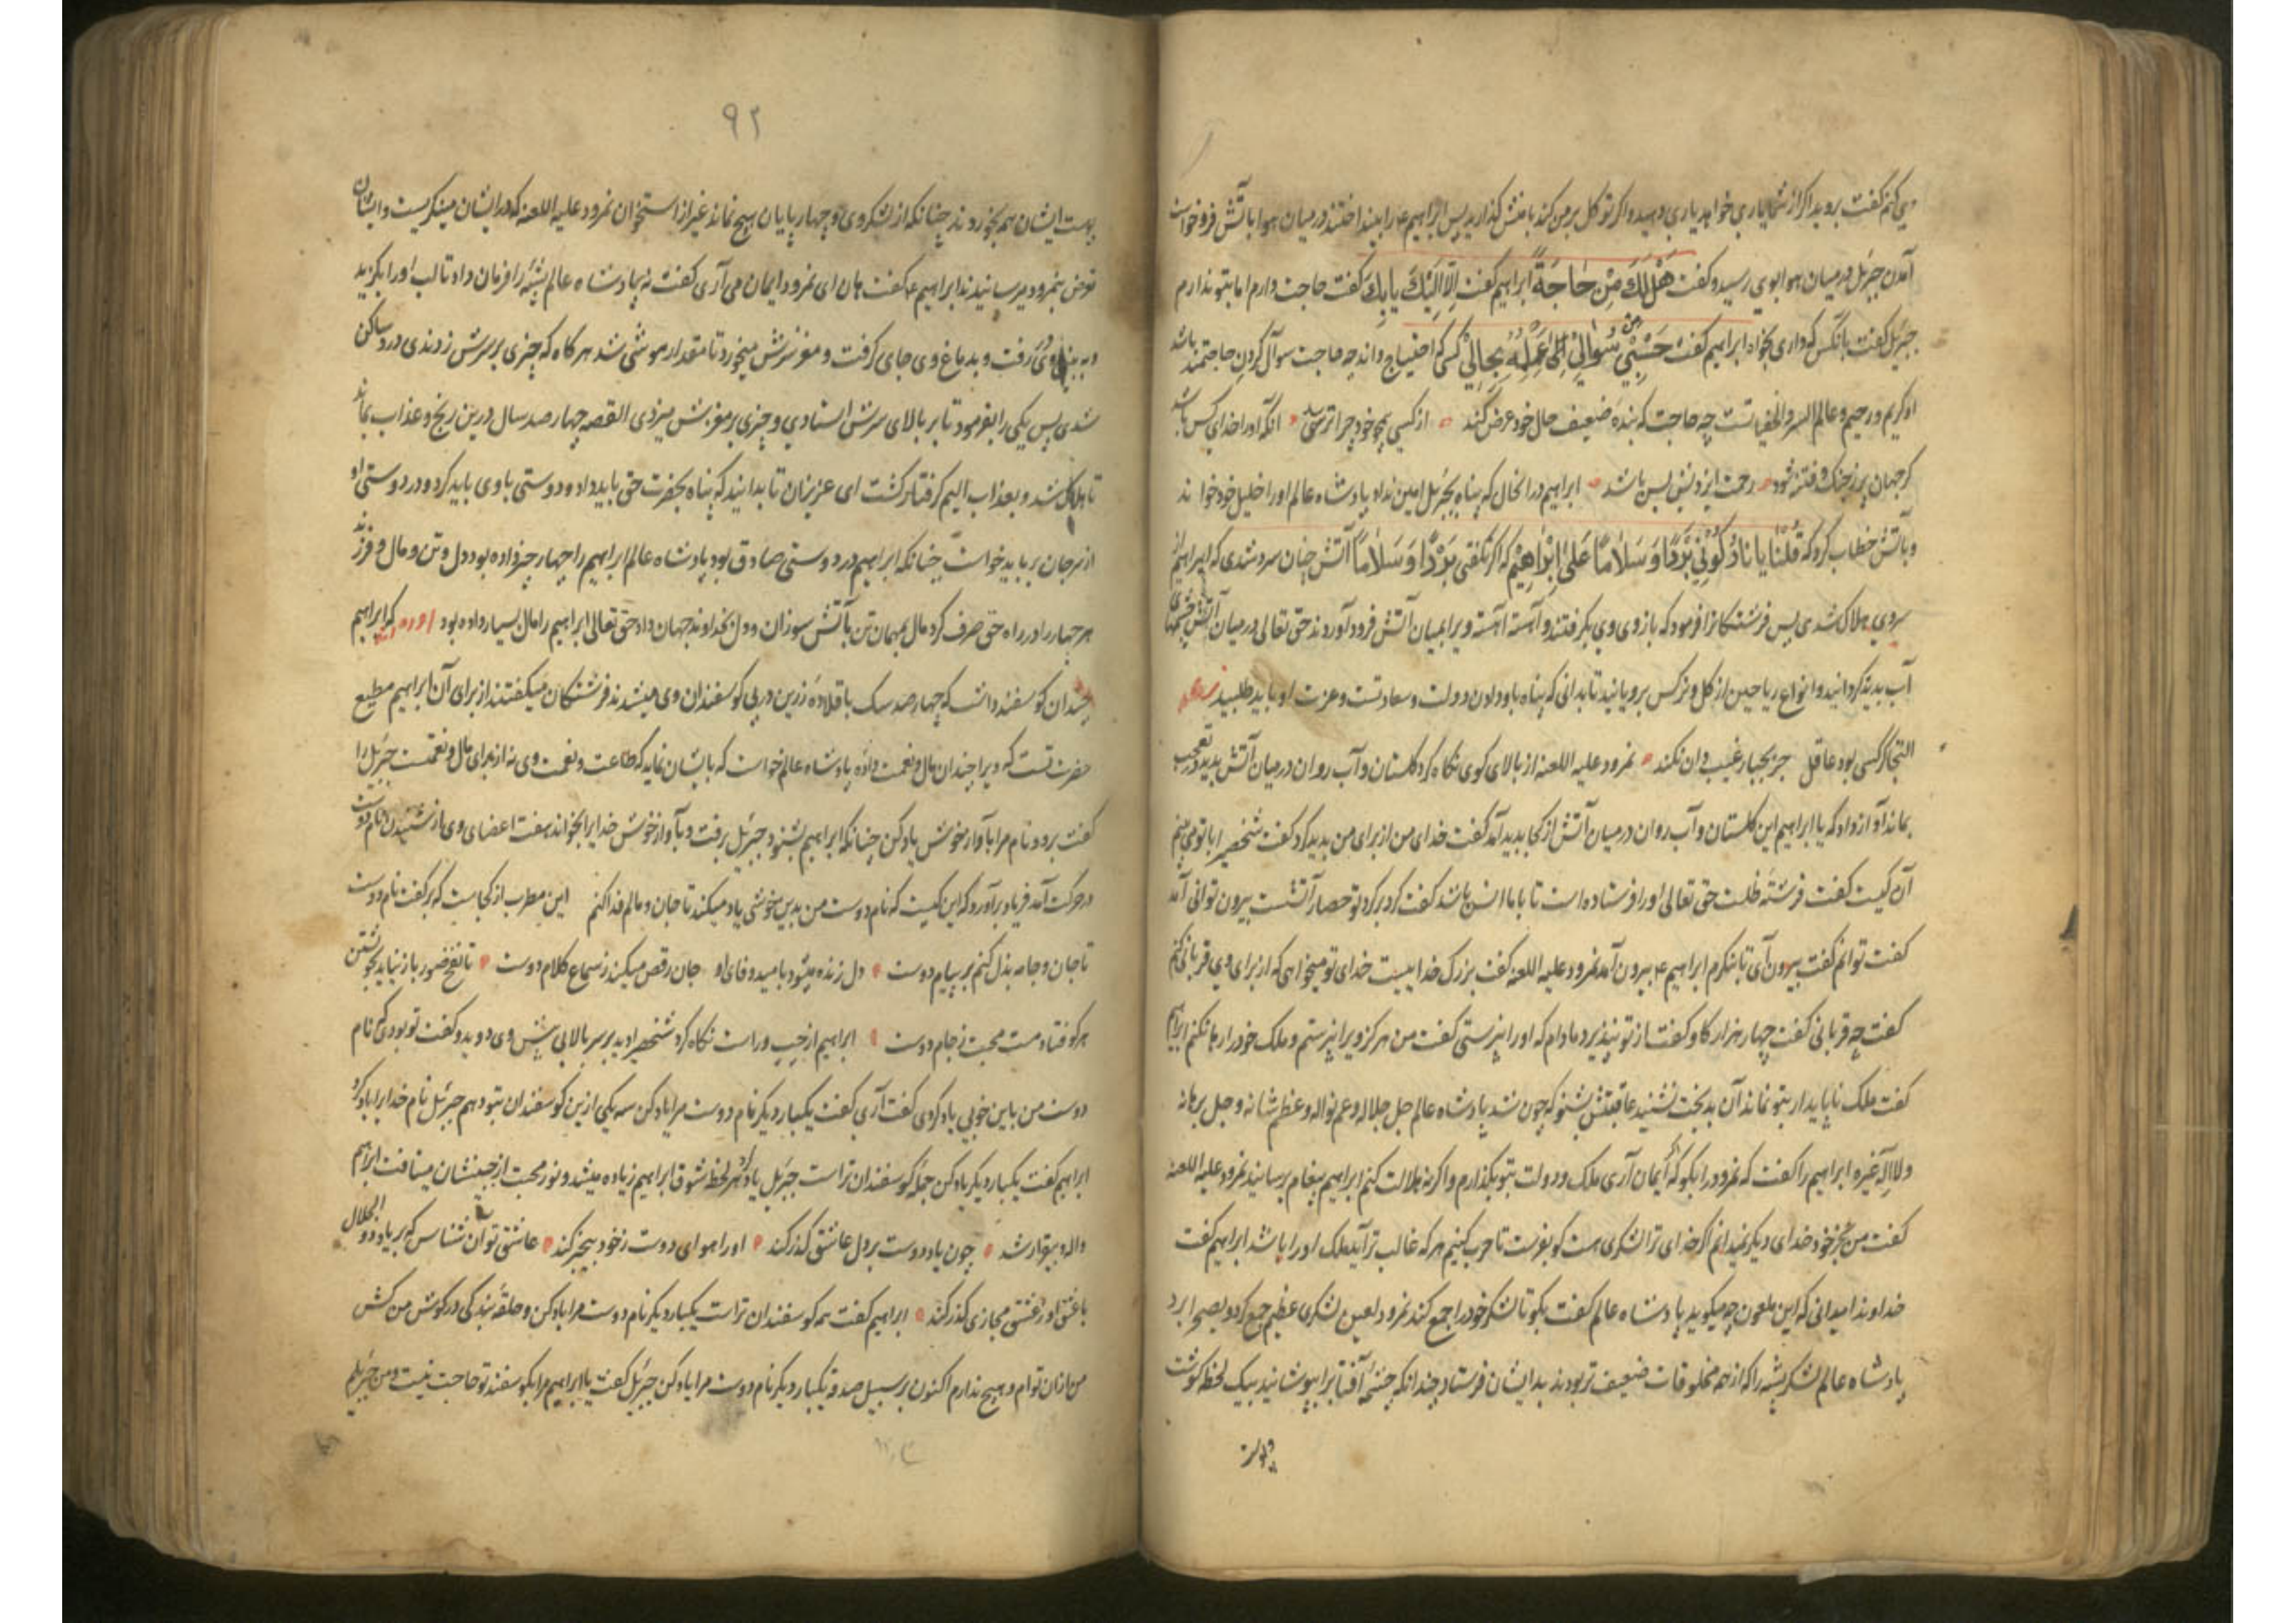 می کنم گفت بروید اگر از شما یاری خواهد یاری دهید و اگر توکل بر من کند با منش گذارید پس ابراهیم را بینداختند در میان هوا با آتش فرو خواست
آمدن جبرئیل در میان هوا بوی رسید و گفت هَلْ لَكَ مِنْ حَاجَةً ابراهیم گفت اِلَّا اِلَيْكَ گفت حاجت دارم اما بتو ندارم
جبرئیل گفت بآنکس که داری بخواه ابراهیم گفت حَسْبِي سُؤَالِي بِحَالِي کسی که احتیاج داند چه حاجت سوال کردن حاجتمند باشد
او کریم و رحیم و عالم السر و الخفیاتست چه حاجت که بنده ضعیف حال خود عرض کند از کسی همچو خود چرا ترسد آنکه او را خدای کس باشد
کر جهان پر ز جنک و فتنه شود رحمت ایزدیش بس باشد ابراهیم در انحال که پناه بجبرئیل امین نداد پادشاه عالم او را خلیل خود خواند
و بآتش خطاب کرد که قُلْنَا يَا نَارُ كُونِي بَرْدًا وَسَلَامًا عَلَىٰ اِبْرَاهِيمَ که اگر نگفتی بَرْدًا وَسَلَامًا آتش چنان سرد شدی که ابراهیم از
سردی هلاک شدی پس فرشتکانرا فرمود که بازوی وی بکرفتند و آهسته آهسته ویرا بمیان آتش فرود آوردند حق تعالی در میان آتش چشمهای
آب پدید کردانید و انواع ریاحین از کل و نرکس برویانید تا بدانی که پناه باو دادن دولت و سعادتست و عزت او باید طلبید
التجا کر کسی بود عاقل جز بجبار غیب دان نکند نمرود علیه اللعنه از بالای کوی نگاه کرد گلستان و آب روان در میان آتش بدید و تعجب
بماند آواز داد که یا ابراهیم این گلستان و آب روان در میان آتش از کجا پدید آمد گفت خدای من از برای من پدید کرد گفت شخصی را با تو می بینم
آن کیست گفت فرشته ظلست حق تعالی او را فرستاده است تا با ما انس باشد گفت کرد بر کرد تو حصار آتشست بیرون توانی آمد
گفت توانم گفت بیرون آی تا بنکرم ابراهیم ع بیرون آمد نمرود علیه اللعنه گفت بزرک خدائیست خدای تو میخواهی که از برای وی قربانی کنم
گفت چه قربانی گفت چهار هزار کاو گفت از تو نپذیرد مادام که او را نپرستی گفت من هرکز ویرا نپرستم و ملک خود را رها نکنم ابراهیم
گفت ملک ناپایدار بتو نماند آن بدبخت نشنید عاقبتش بشنو که چون شد پادشاه عالم جل جلاله و عم نواله و عظم شانه و جل برهانه
و لا اله غیره ابراهیم را گفت که نمرود را بکو که ایمان آری ملک و دولت بتو بکذارم و اکر نه هلاکت کنم ابراهیم پیغام برسانید نمرود علیه اللعنه
گفت من بجز خود خدای دیگر نمیدانم اگر خدای ترا لشکری هست کو بفرست تا حرب کنیم هر که غالب تر آید ملک او را باشد ابراهیم گفت
خداوندا میدانی که این ملعون چه میکوید پادشاه عالم گفت بکو تا لشکر خود را جمع کند نمرود لعین لشکری عظیم جمع کرد و بصحرا برد
پادشاه عالم لشکر پشه را که از همه مخلوقات ضعیف تر بودند بدایشان فرستاد چندانکه چشمه آفتاب را بپوشانید بیک لحظه گوشت
و پوست
۹۲
پوست ایشان همه بخوردند چنانکه از لشکر وی و چهارپایان هیچ نماند غیر از استخوان نمرود علیه اللعنه که در ایشان مینکریست و ایشان
بنمرود میرسانیدند ابراهیم ع گفت هان ای نمرود ایمان می آری گفت نه پادشاه عالم پشه را فرمان داد تا لب او را بکزید
و به بینی وی رفت و بدماغ وی جای کرفت و مغز سرش میخورد تا مقدار موشی شد هر گاه که چیزی بر سرش زدندی در وی ساکن
شدی پس یکی را بفرمود تا بر بالای سرش استادی و چیزی بر مغزش میزدی القصه چهارصد سال درین رنج و عذاب بماند
تا هلاک شد و بعذاب الیم کرفتار کشت ای عزیزان تا بدانید که پناه بحضرت حق باید داد و دوستی با وی باید کرد و در دوستی او
از سر جان بر باید خواست چنانکه ابراهیم در دوستی صادق بود پادشاه عالم ابراهیم را چهار چیز داده بود دل و تن و مال و فرزند
هر چهار را در راه حق صرف کرد مال بمهمان تن بآتش سوزان و دل بخداوند جهان داد حق تعالی ابراهیم را مال بسیار داده بود آورده اند که ابراهیم
چندان کوسفند داشت که چهارصد سک با قلاده زرین در پی کوسفندان وی میشدند فرشتکان میکفتند از برای آن ابراهیم مطیع
حضرت تست که ویرا چندان مال و نعمت داده پادشاه عالم خواست که بایشان نماید که طاعت وی نه از برای مال و نعمتست جبرئیل را
گفت برو و نام مرا بآواز خوش یاد کن چنانکه ابراهیم بشنود جبرئیل برفت و بآواز خوش خدایرا بخواند هفت اعضای وی از شنیدن نام دوست
در حرکت آمد فریاد برآورد که این کیست که نام دوست من بدین خوشی یاد میکند تا جان و مالم فدا کنم این مطرب از کجاست که بر گفت نام دوست
تا جان و جامه بذل کنم بر پیام دوست دل زنده میشود بامید وفای او جان رقص میکند ز سماع کلام دوست تا نفخ صور باز نیاید بخویشتن
هر کو فتاد مست محبت ز جام دوست ابراهیم از چپ و راست نگاه کرد شخصی را دید بر سر بالایی پیش وی دوید و گفت تو بودی که نام
دوست من باین خوبی یاد کردی گفت آری گفت یکبار دیگر نام دوست مرا یاد کن سه یکی ازین کوسفندان بتو دهم جبرئیل نام خدا را یاد کرد
ابراهیم گفت یکبار دیگر یاد کن جمله کوسفندان تراست جبرئیل یاد کرد هر لحظه شوق ابراهیم زیاده میشد و نور محبت از جبینشان میتافت ابراهیم
واله و بیقرار شد چون یاد دوست بر دل عاشق گذر کند او را هوای دوست ز خود بیخبر کند عاشق تو آن شناس که بر یاد ذو الجلال
با عشق او ز عشق مجازی گذر کند ابراهیم گفت همه کوسفندان تراست یکبار دیگر نام دوست مرا یاد کن و حلقه بندگی در گوش من کش
من از ان توام و هیچ ندارم اکنون بر سبیل صدقه یکبار دیگر نام دوست مرا یاد کن جبرئیل گفت یا ابراهیم مرا بکوسفند تو حاجت نیست و من جبرئیلم